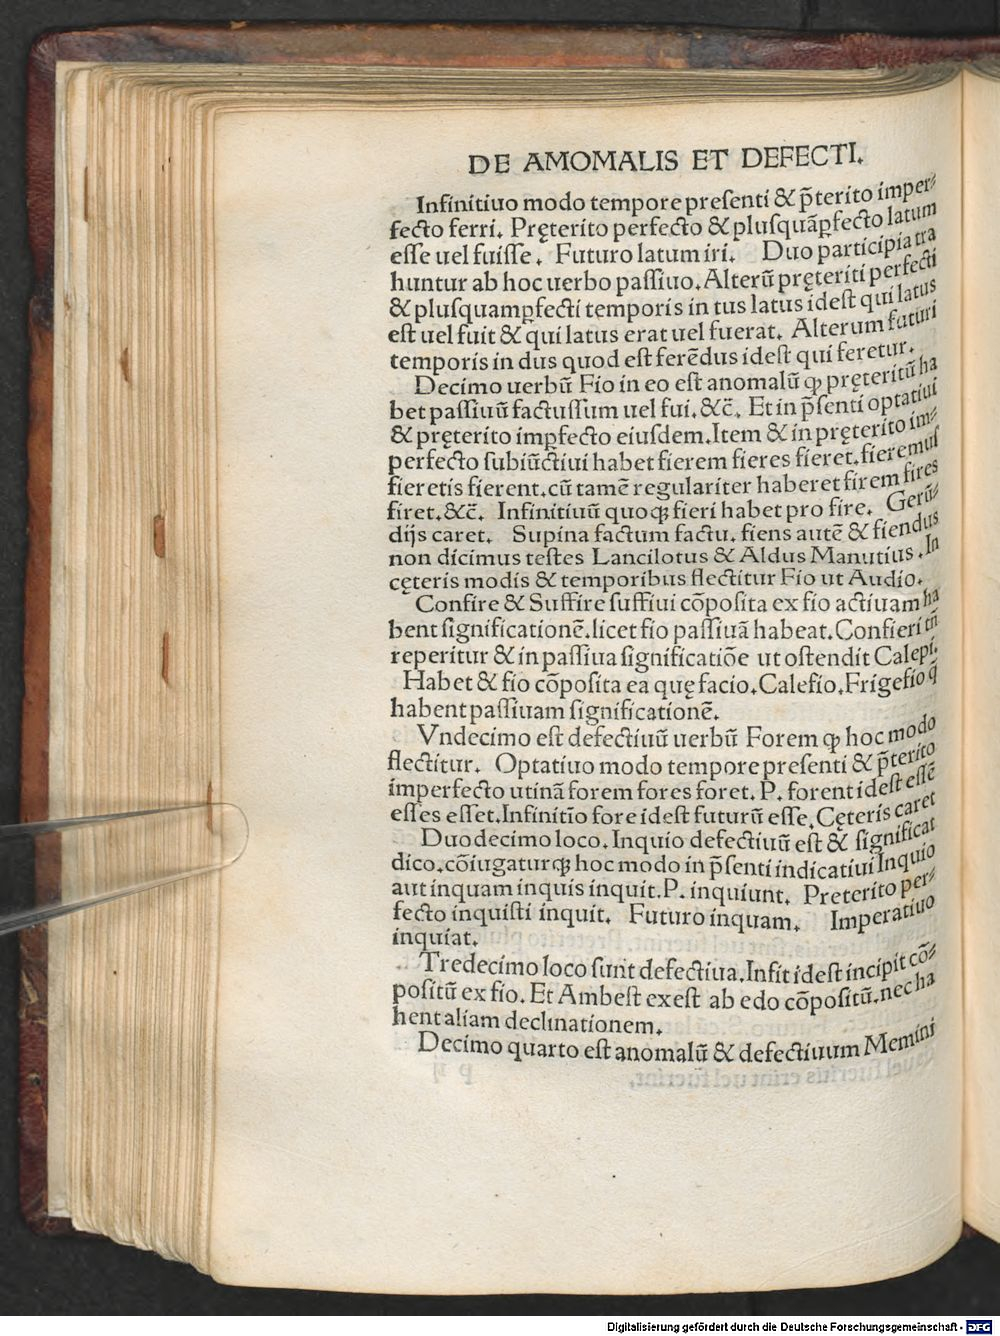 DE AMOMALIS ET DEFECTI.
Infinitiuo modo tempore preſenti & p̃terito imper⸗
fecto ferri. Pręterito perfecto & pluſquãꝑfecto latum
eſſe uel fuiſſe. Futuro latum iri. Duo participia tra
huntur ab hoc uerbo paſſiuo. Alterũ pręteriti perfecti
& pluſquamꝑfecti temporis in tus latus ideſt qui latus
eſt uel fuit & qui latus erat uel fuerat. Alterum futuri
temporis in dus quod eſt ferẽdus ideſt qui feretur.
Decimo uerbũ Fio in eo eſt anomalũ ꝙ pręteritũ ha
bet paſſiuũ factuſſum uel fui. &c̃. Et in p̃ſenti optatiui
& pręterito imꝑfecto eiuſdem. Item & in pręterito im⸗
perfecto ſubiũctiui habet fierem fieres fieret. fieremuſ
fieretis fierent. cũ tamẽ regulariter haberet firem fires
firet. &c̃. Infinitiuũ quoqꝫ fieri habet pro fire. Gerũ⸗
dijs caret. Supina factum factu. fiens autẽ & fiendus
non dicimus teſtes Lancilotus & Aldus Manutius. In
cęteris modis & temporibus flectitur Fio ut Audio.
Confire & Suffire ſuffiui cõpoſita ex fio actiuam ha
bent ſignificationẽ. licet fio paſſiuã habeat. Confieri tñ
reperitur & in paſſiua ſignificatiõe ut oſtendit Calepi.
Habet & fio cõpoſita ea quę facio. Calefio. Frigefio q̃
habent paſſiuam ſignificationẽ.
Vndecimo eſt defectiuũ uerbũ Forem ꝙ hoc modo
flectitur. Optatiuo modo tempore preſenti & p̃terito
imperfecto utinã forem fores foret. P. forent ideſt eſſẽ
eſſes eſſet. Infinitĩo fore ideſt futurũ eſſe. Cęteris caret
Duodecimo loco. Inquio defectiuũ eſt & ſignificat
dico. cõiugaturqꝫ hoc modo in p̃ſenti indicatiui Inquio
aut inquam inquis inquit. P. inquiunt. Preterito per⸗
fecto inquiſti inquit. Futuro inquam. Imperatiuo
inquiat.
Tredecimo loco ſunt defectiua. Infit ideſt incipit cõ⸗
poſitũ ex fio. Et Ambeſt exeſt ab edo cõpoſitũ. nec ha
hent aliam declinationem.
Decimo quarto eſt anomalũ & defectiuum Memini
Digitalisierung gefördert durch die Deutsche Forschungsgemeinschaft - DFG